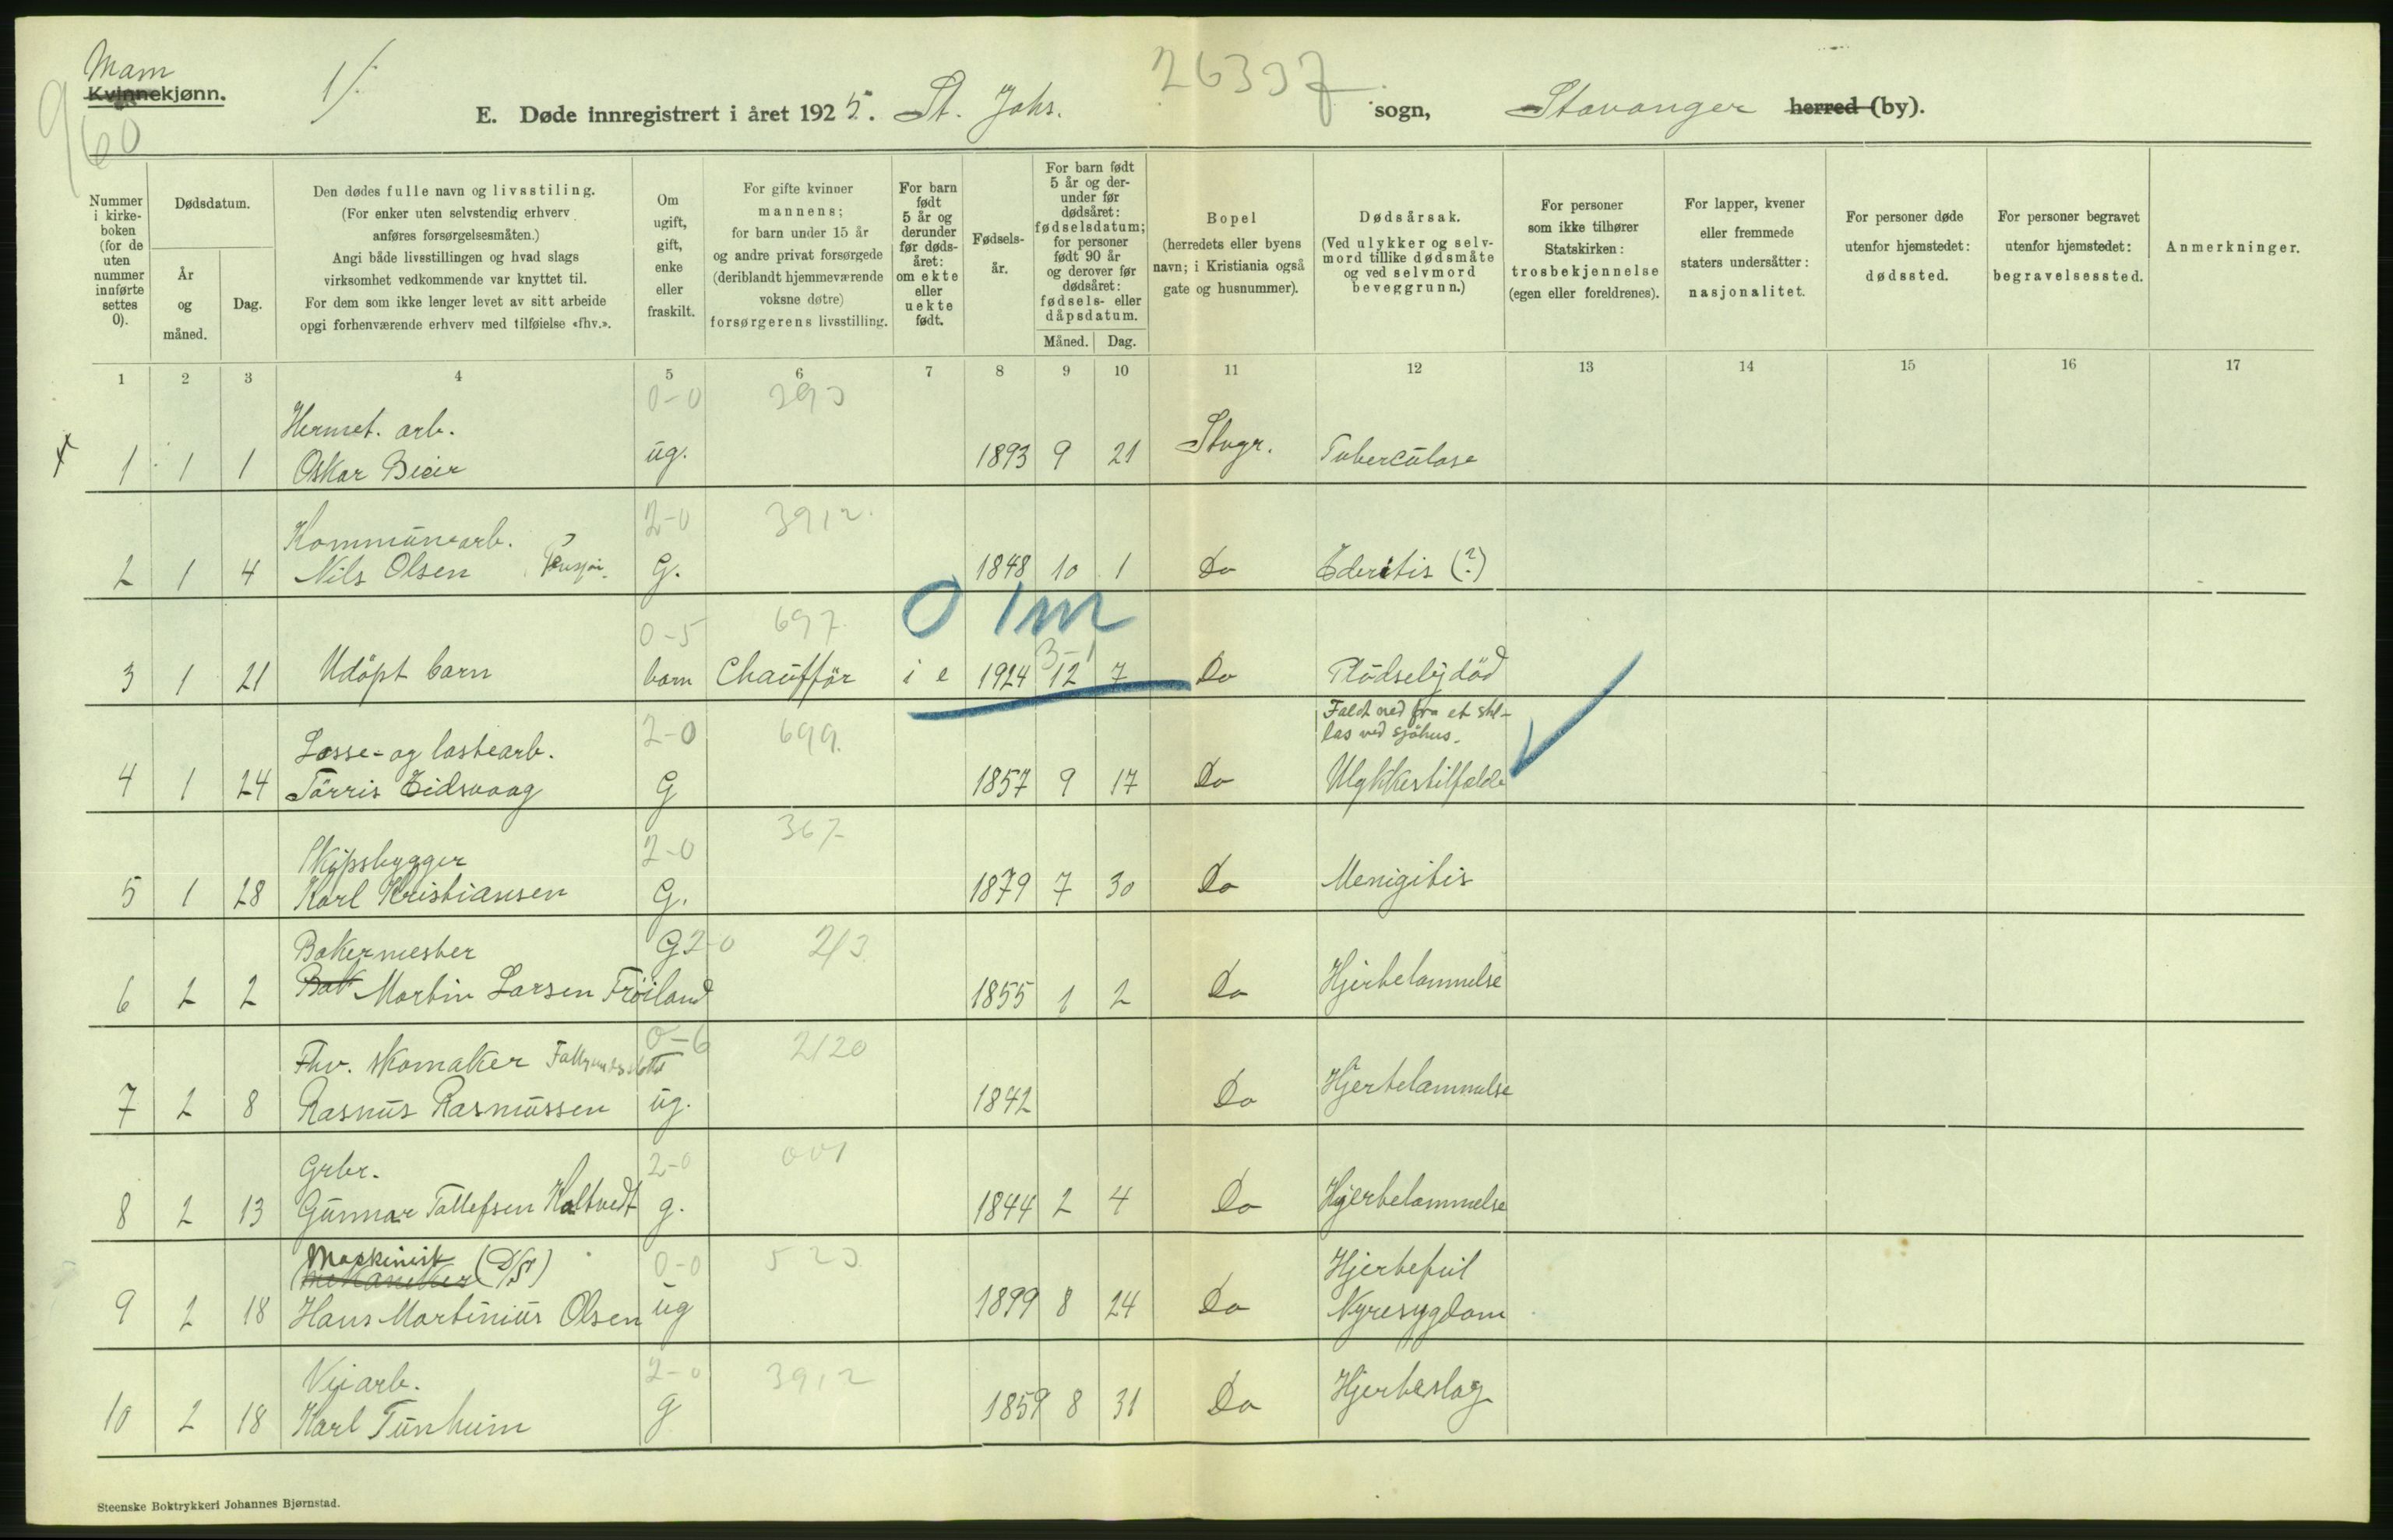 Mann
Kvinnekjønn.
1/:
26337
960
E. Døde innregistrert i året 1925. St. Johs. sogn, Stavanger herred (by).
Nummer i kirkeboken (for de uten nummer innførte settes 0).
Dødsdatum.
År og måned.
Dag.
Den dødes fulle navn og livsstiling.
(For enker uten selvstendig erhverv
anføres forsørgelsesmåten.)
Angi både livsstillingen og hvad slags
virksomhet vedkommende var knyttet til.
For dem som ikke lenger levet av sitt arbeide
opgi forhenværende erhverv med tilføielse «fhv.».
Om ugift, gift, enke eller fraskilt.
For gifte kvinner
mannens;
for barn under 15 år
og andre privat forsørgede
(deriblandt hjemmeværende
voksne døtre)
forsørgerens livsstilling.
For barn født 5 år og derunder før dødsåret: om ekte eller uekte født.
Fødselsår.
For barn født 5 år og derunder før dødsåret: fødselsdatum; for personer født 90 år og derover før dødsåret: fødsels- eller dåpsdatum.
Måned. Dag.
Bopel
(herredets eller byens
navn; i Kristiania også
gate og husnummer).
Dødsårsak.
(Ved ulykker og selvmord tillike dødsmåte
og ved selvmord
beveggrunn.)
For personer
som ikke tilhører
Statskirken:
trosbekjennelse
(egen eller foreldrenes).
For lapper, kvener
eller fremmede
staters undersåtter:
nasjonalitet.
For personer døde
utenfor hjemstedet:
dødssted.
For personer begravet
utenfor hjemstedet:
begravelsessted.
Anmerkninger.
1 2 3 4 5 6 7 8 9 10 11 12 13 14 15 16 17
Hermet. arb. 0-0 293
1 1 1 Oskar Beier ug. 1893 9 21 Stvgr. Tuberculose
Kommunearb. 2-0 3912
2 1 4 Nils Olsen G. 1848 10 1 Do (?)
0-5 697 0 1m
3-1
3 1 21 Udöpt barn barn Chaufför i e 1924 12 7 Do Plödseligdöd
Faldt ned fra et stil-
las ved sjöhus.
Losse- og lastearb. 2-0 699
4 1 24 Törris Eidsvaag G 1857 9 17 Do Ulykkestilfælde
Skipsbygger 2-0 367
5 1 28 Karl Kristiansen G. 1879 7 30 Do Menigitis
Bakermester G 2-0 213
6 2 2 Bak Martin Larsen Fröiland 1855 1 2 Do Hjertelammelse
Fhv. skomaker 0-6 2120
7 2 8 Rasmus Rasmussen ug. 1842 Do Hjertelammelse
Grbr. 2-0 001
8 2 13 Gunnar TollefsenHoltvedt g. 1844 2 4 Do Hjertelammelse
Maskinist
mekaniker (D/S) 0-0 523 Hjertefeil
9 2 18 Hans Martinius Olsen ug 1899 8 24 Do Nyresygdom
Veiarb. 2-0 3912
10 2 18 Karl Tunheim g 1859 8 31 Do Hjerteslag
Steenske Boktrykkeri Johannes Bjørnstad.